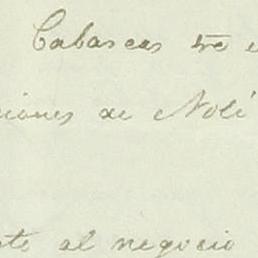 Cabascas tre
ciones de Nolé
al negocio